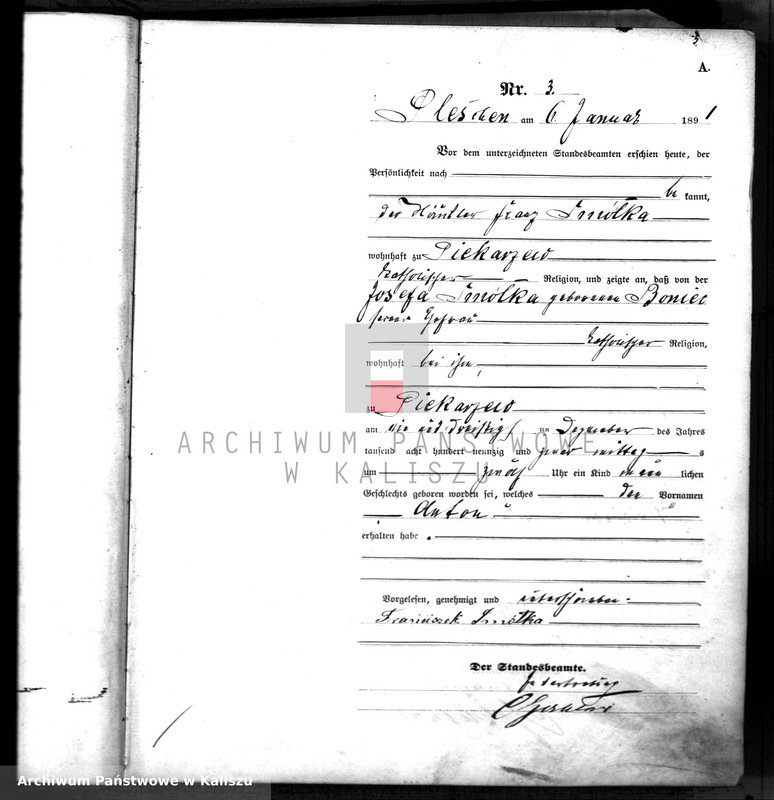 3
A.
Nr. 3.
Pleschen am 6 Januar 1891
Vor dem unterzeichneten Standesbeamten erschien heute, der
Persönlichkeit nach
be kannt,
der Häusler Franz Smółka
wohnhaft zu Piekarzew
katholischer Religion, und zeigte an, daß von der
Josefa Smółka geborenen Boniec
seiner Ehefrau
katholischer Religion,
wohnhaft bei ihm,
zu Piekarzew
am ein und dreißigsten Dezember des Jahres
tausend acht hundert neunzig und zwar mittag s
um zwölf Uhr ein Kind männ lichen
Geschlechts geboren worden sei, welches den Vornamen
Anton
erhalten habe.
Vorgelesen, genehmigt und unterschrieben
Franciszek Smółka
Der Standesbeamte.
In Vertretung
ARCHIWUM PAŃSTWOWE
W KALISZU
Archiwum Państwowe w Kaliszu